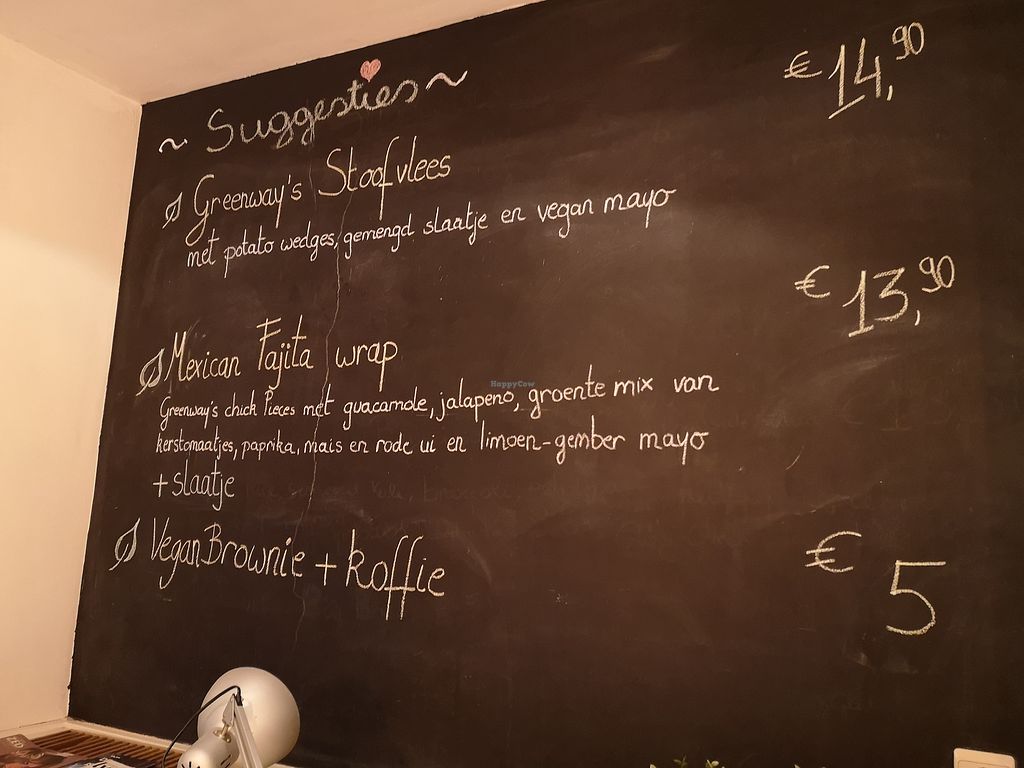 ~ Suggesties ~
Greenway's Stoofvlees € 14,90
met potato wedges, gemengd slaatje en vegan mayo
Mexican Fajita wrap € 13,90
Greenway's chick Pieces met guacamole, jalapeno, groente mix van
kerstomaatjes, paprika, mais en rode ui en limoen-gember mayo
+ slaatje
Vegan Brownie + koffie € 5
HappyCow